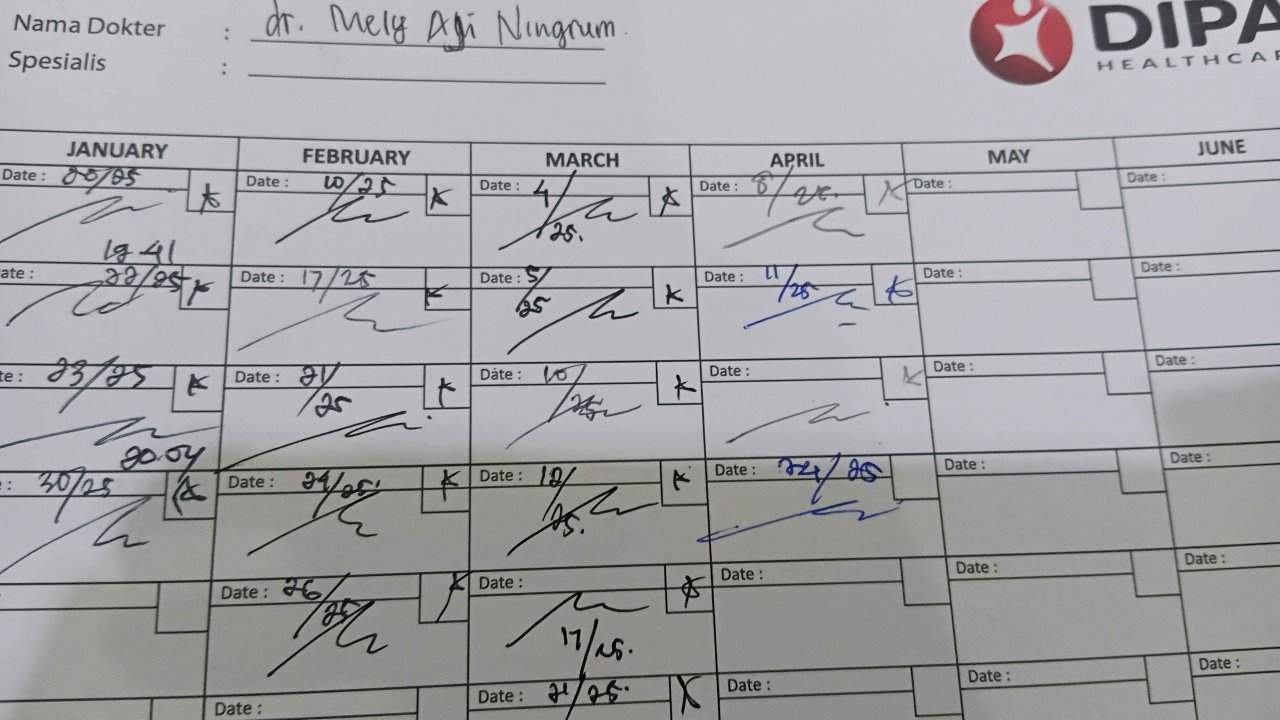 Nama Dokter : dr. Mely Agi Ningrum.
DIPA
HEALTHCAR
Spesialis :
JANUARY FEBRUARY MARCH APRIL MAY JUNE
Date : 20/25 Date : 10/25 Date : 4/25. Date : 8/25. Date : Date :
19.41
ate : 22/25 Date : 17/25 Date : 5/25 Date : 11/25 Date : Date :
te : 23/25 Date : 21/25 Date : 10/25 Date : Date : Date :
20.04
: 30/25 Date : 24/25 Date : 12/25. Date : 24/25 Date : Date :
Date : 26/25 Date : 17/25. Date : Date : Date :
Date : Date : 21/25. Date : Date : Date :